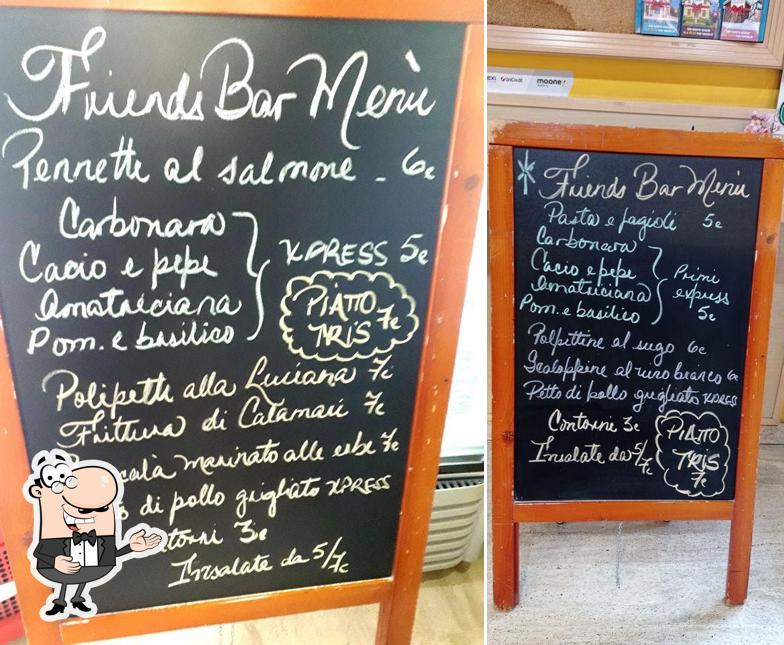 Friends Bar Menù
Pennette al salmone - 6€
Carbonara
Cacio e pepe
Amatriciana
Pom. e basilico
XPRESS 5€
PIATTO
TRIS 7€
Polipetti alla Luciana 7€
Frittura di Calamari 7€
calà marinato alle erbe 7€
di pollo grigliato XPRESS
torni 3€
Insalate da 5/7€
UniCredit
moone
Friends Bar Menù
Pasta e fagioli 5€
Carbonara
Cacio e pepe
Amatriciana
Pom. e basilico
Primi
express
5€
Polpettine al sugo 6€
Scaloppine al vino bianco 6€
Petto di pollo grigliato XPRESS
Contorni 3€
Insalate da 5/7€
PIATTO
TRIS
7€